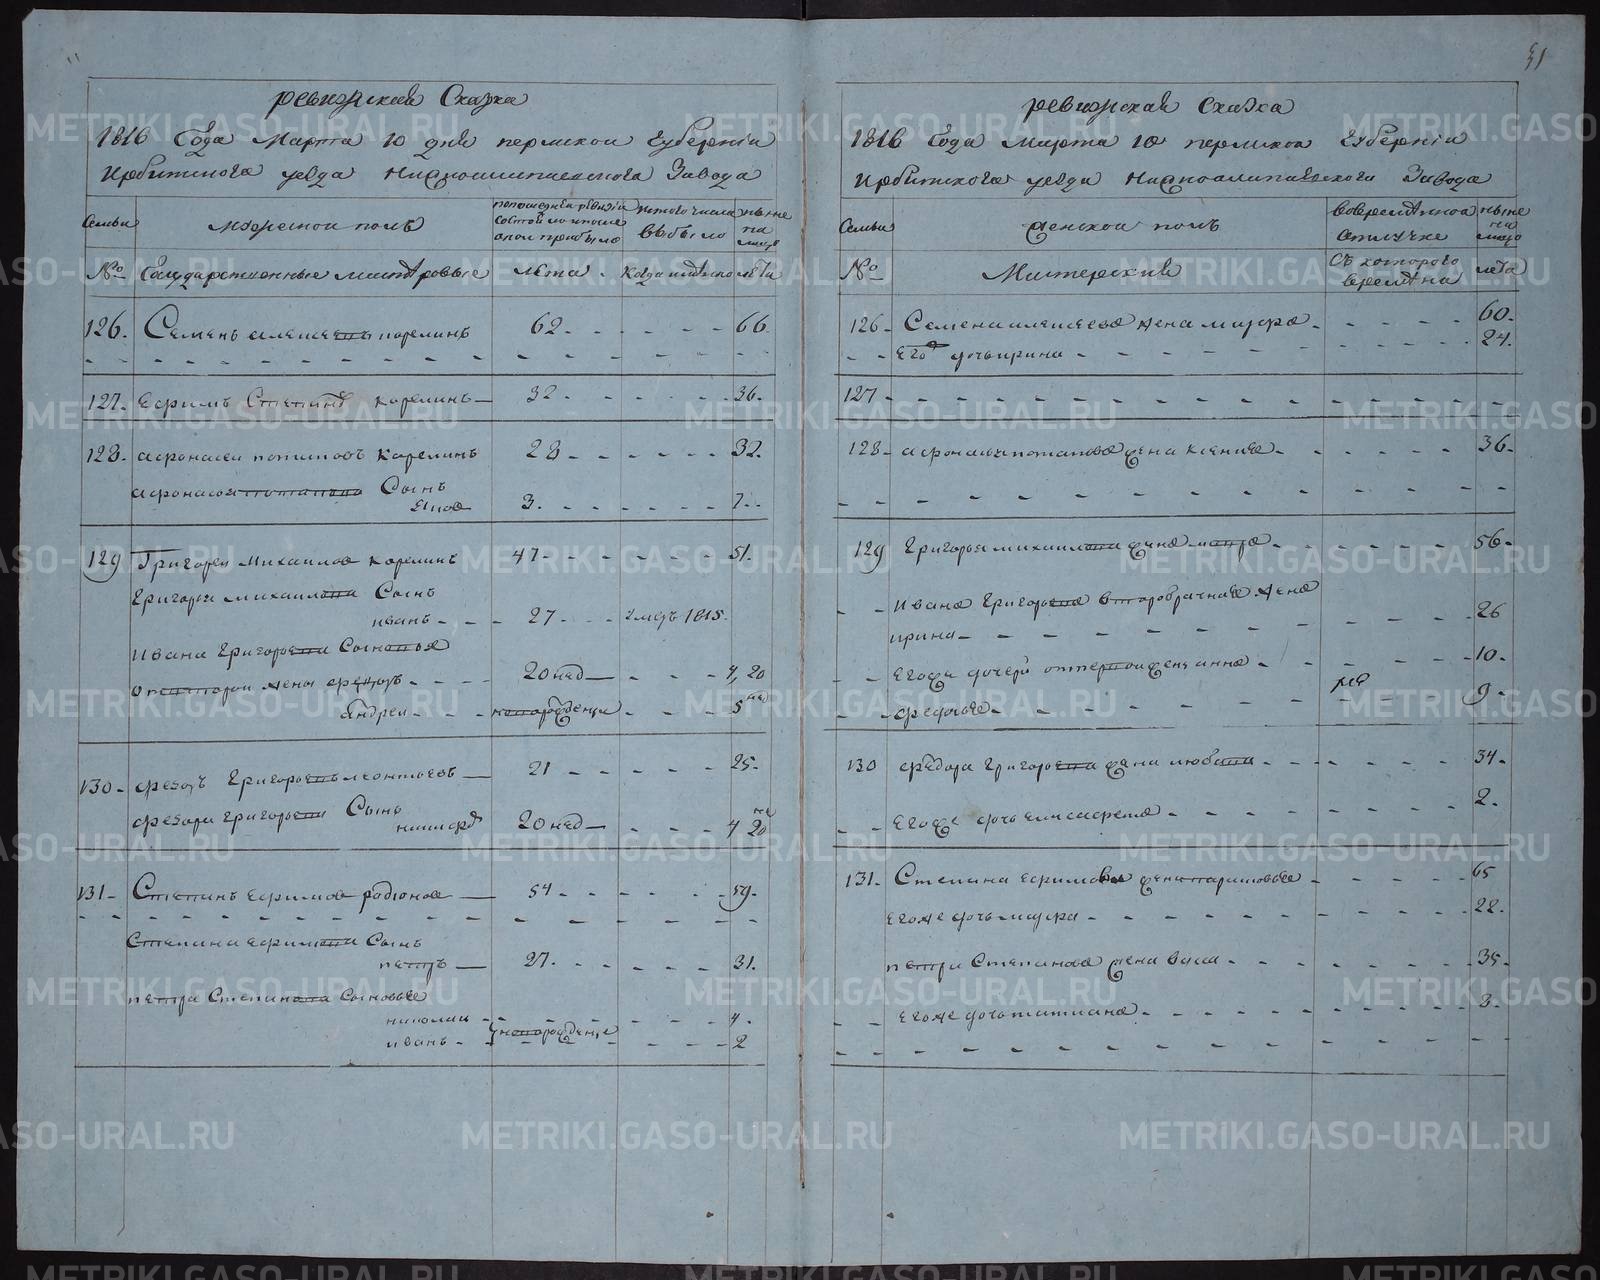 31
ревижская Сказка
1816 Года Марта 10 дня пермской Губернїи
Ирбитского уезда Нижноалапаевского Завода
Семьи
мужеской полъ
по последней ревизїи состояло и после оной прибыло
из того числа выбыло
ныне на лицо
№
Государственные мастеровые
лѣта
Когда имянно
лѣта
126. Семенъ алексеевъ карелинъ 62 66
127. Ефримъ Степанов карелинъ 32 36.
128. афонасеи потаповъ карелинъ 28 32.
афонасья потапова Сынъ
3. 7.
129 Григореи Михаилов карелинъ 47 51.
Григорья михаилова Сынъ
иванъ 27 умеръ 1815.
Ивана Григорьева Сыновья
от второй жены федоръ 20 нед 4, 20
Андреи новорожденъ 5 нед
130 федоръ Григорьевъ леонтьевъ 21 25.
федора Григорьева Сынъ
20 нед 4 20 не
131 Степанъ Ефримов родионов 54 59.
Степана Ефримова Сынъ
петръ 27. 31.
петра Степанова Сыновье
николаи 4.
новорожденъ
иванъ 2
ревижская Сказка
1816 Года Марта 10 пермской Губернїи
Ирбитского уезда Нижноалапаевского Завода
Семьи
женской полъ
во временной отлучке
ныне на лицо
№
Мастерский
Съ которого времѣна
лета
126 Семена алексеева жена марфа 60.
Его дочь ирина 24.
127
128 афонасья потапова жена ксения 36.
129 Григорья михаилова жена марфа 56
Ивана Григорьева второбрачная жена
ирина 26
Егож дочери от первой жены анна 10.
федосье 9
130 федора Григорьева жена любава 34
Егоже дочь елисафета 2.
131. Степана ефримова жена парасковье 65
Егоже дочь марфа 22.
петра Степанова жена васса 35
Егоже дочь татиана 3.
METRIKI.GASO-URAL.RU